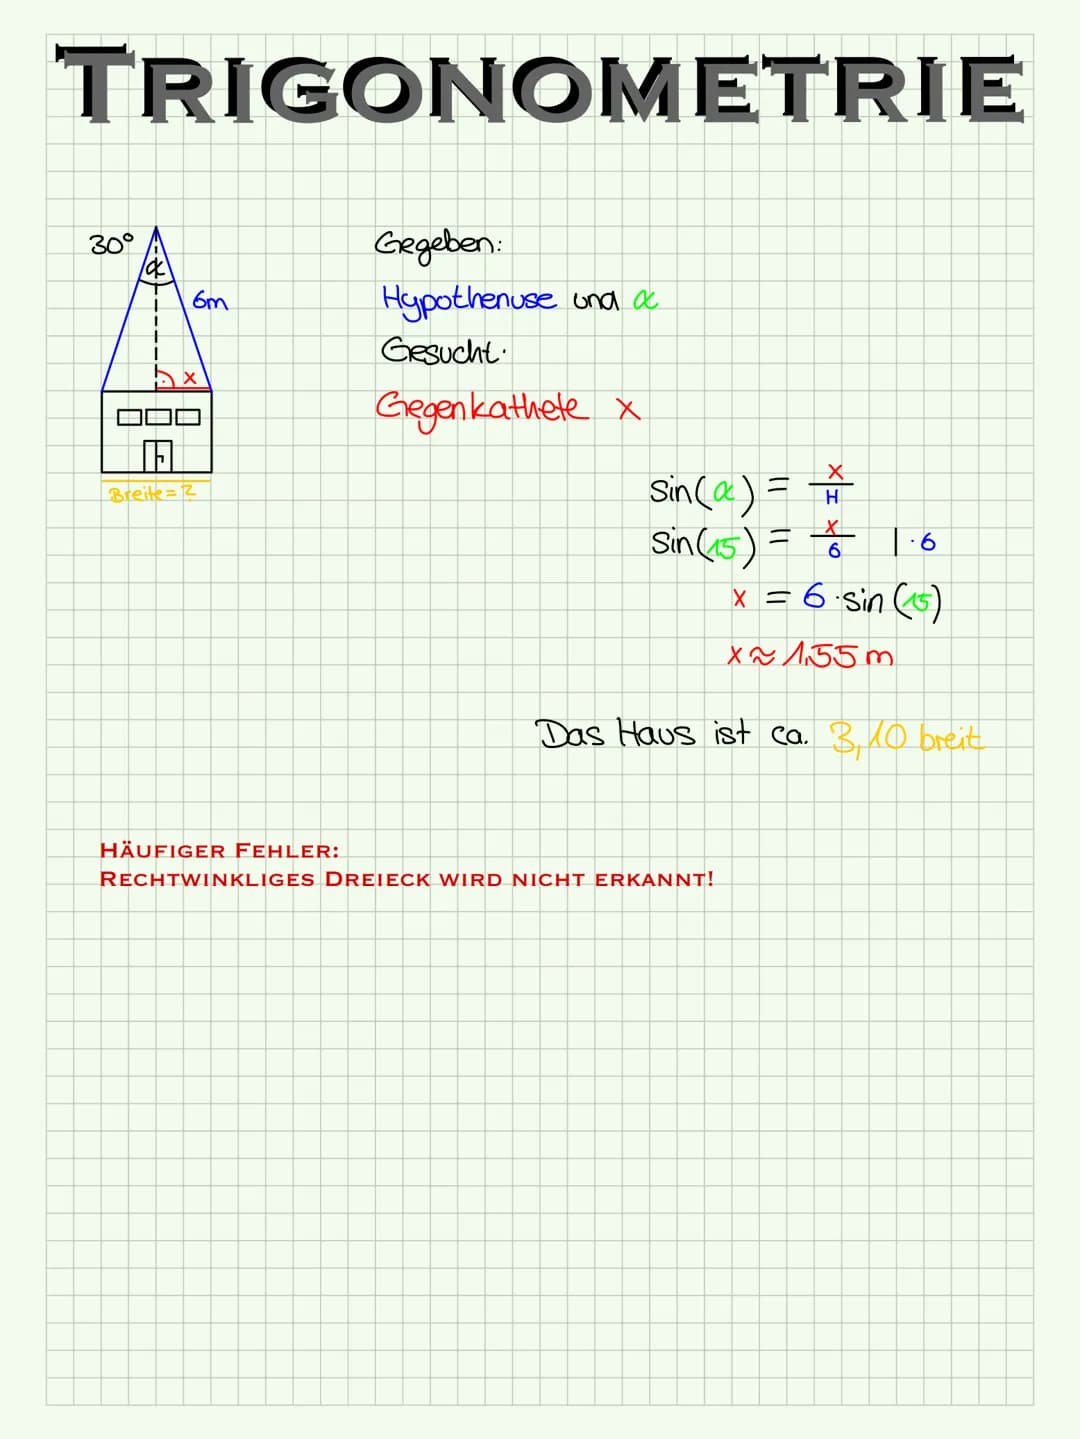 TRIGONOMETRIE
30°
α
6m
x
Breite = ?
Gegeben:
Hypothenuse und α
Gesucht:
Gegenkathete x
sin(α) = x/H
sin(15) = x/6 | · 6
x = 6 · sin(15)
x ≈ 1,55 m
Das Haus ist ca. 3,10 breit
HÄUFIGER FEHLER:
RECHTWINKLIGES DREIECK WIRD NICHT ERKANNT!